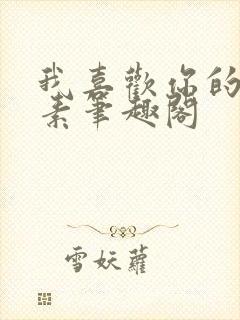 我喜歡你的
素筆趣閣
雪妖蘿